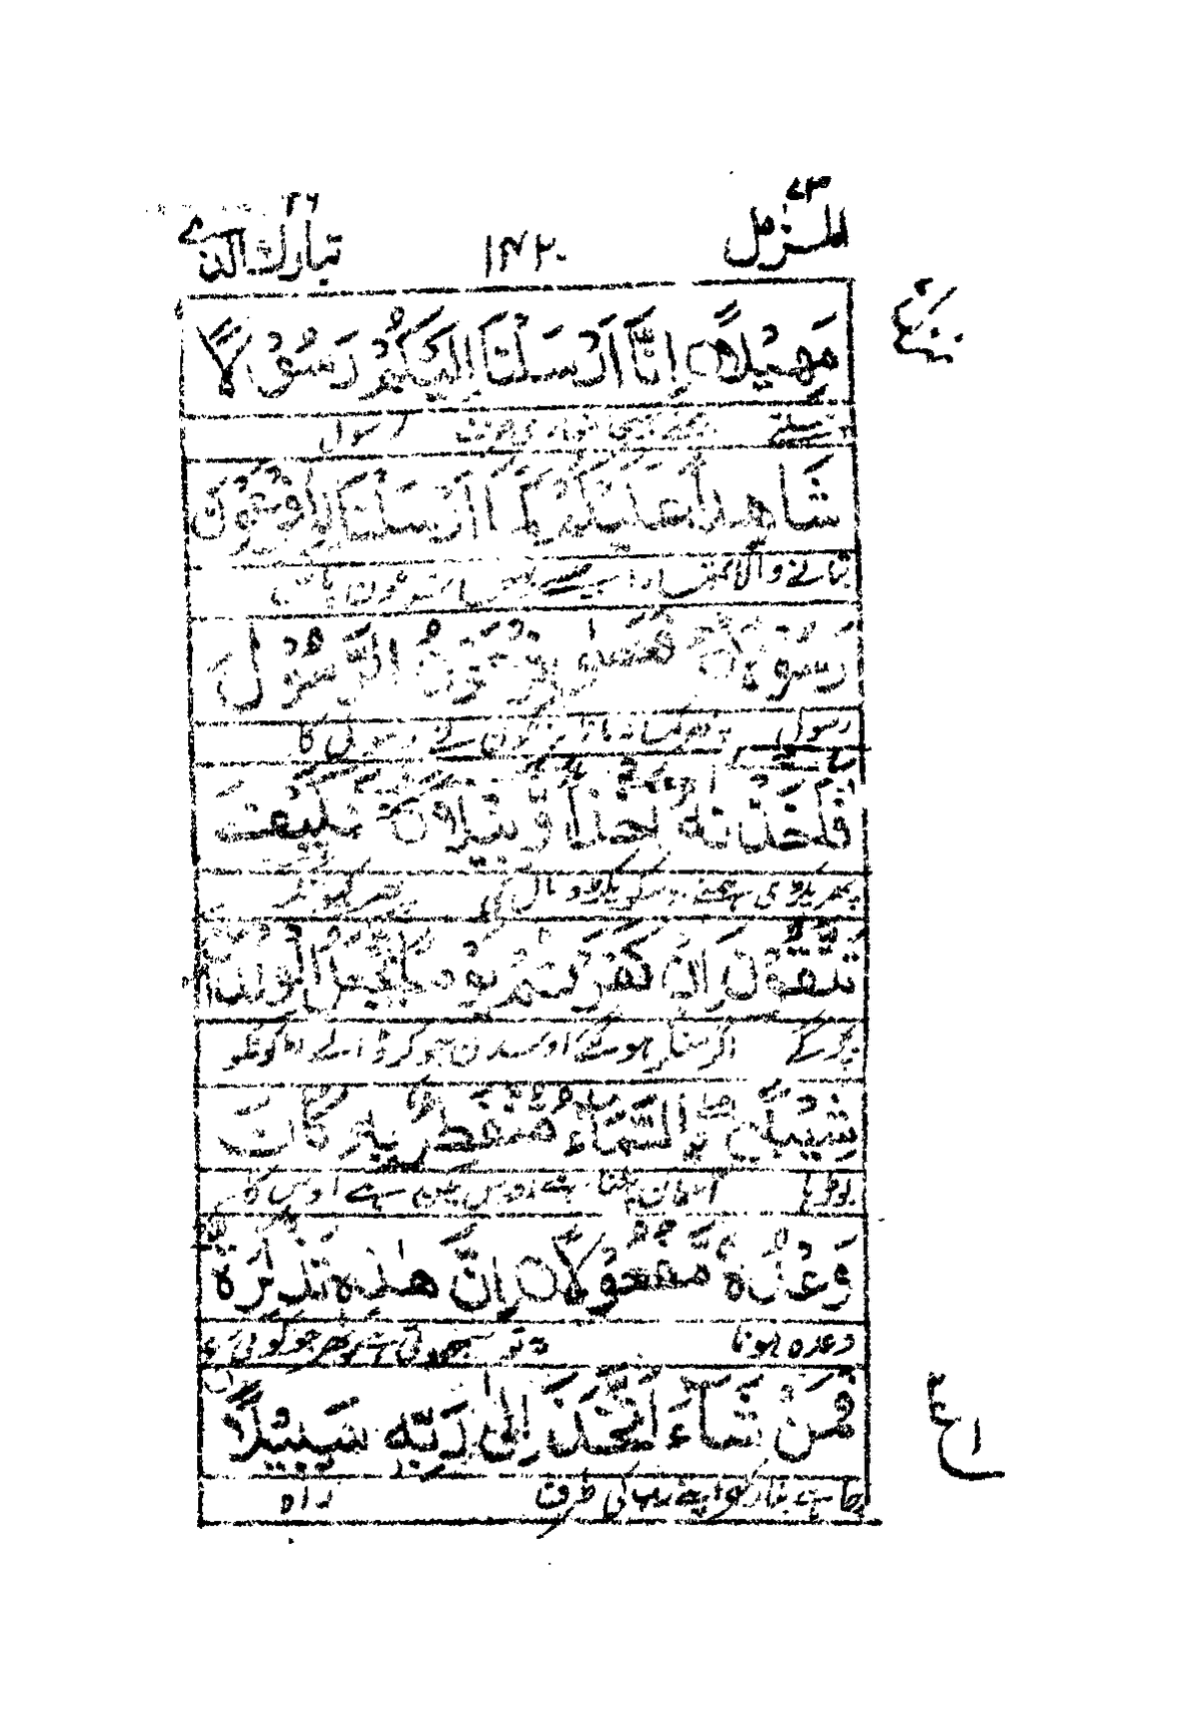 المزمل ٧٣ ١٤٢٠ تبارك الذی ٢٩
مَهِيْلًا ۝ اِنَّا اَرْسَلْنَا اِلَيْكُمْ رَسُوْلًا
پھسلتے رسول
شَاهِدًا عَلَيْكُمْ كَمَا اَرْسَلْنَا اِلٰى فِرْعَوْنَ
بتانے والا تمھارا جیسے بھیجا فرعون پاس
رَسُوْلًا ۝ فَعَصٰى فِرْعَوْنُ الرَّسُوْلَ
رسول پھر کہا نہ مانا فرعون نے رسول کا
فَاَخَذْنٰهُ اَخْذًا وَّبِيْلًا ۝ فَكَيْفَ
پھر پکڑی ہمنے اسکو پکڑ وبال کی پھر کیونکر
تَتَّقُوْنَ اِنْ كَفَرْتُمْ يَوْمًا يَّجْعَلُ الْوِلْدَانَ
بچوگے اگر منکر ہوگے اوسدن جو کر ڈالے لڑکونکو
شِيْبًا ۝ السَّمَآءُ مُنْفَطِرٌۢ بِهٖ كَانَ
بوڑھا آسمان پھٹنا ہے اوس دن ہے اوس کا
وَعْدُهٗ مَفْعُوْلًا ۝ اِنَّ هٰذِهٖ تَذْكِرَةٌ
وعدہ ہونا یہ تو سمجھوتی ہے پھر جو کوئی
فَمَنْ شَآءَ اتَّخَذَ اِلٰى رَبِّهٖ سَبِيْلًا
چاہے بنا رکھے اپنے رب کی طرف راہ